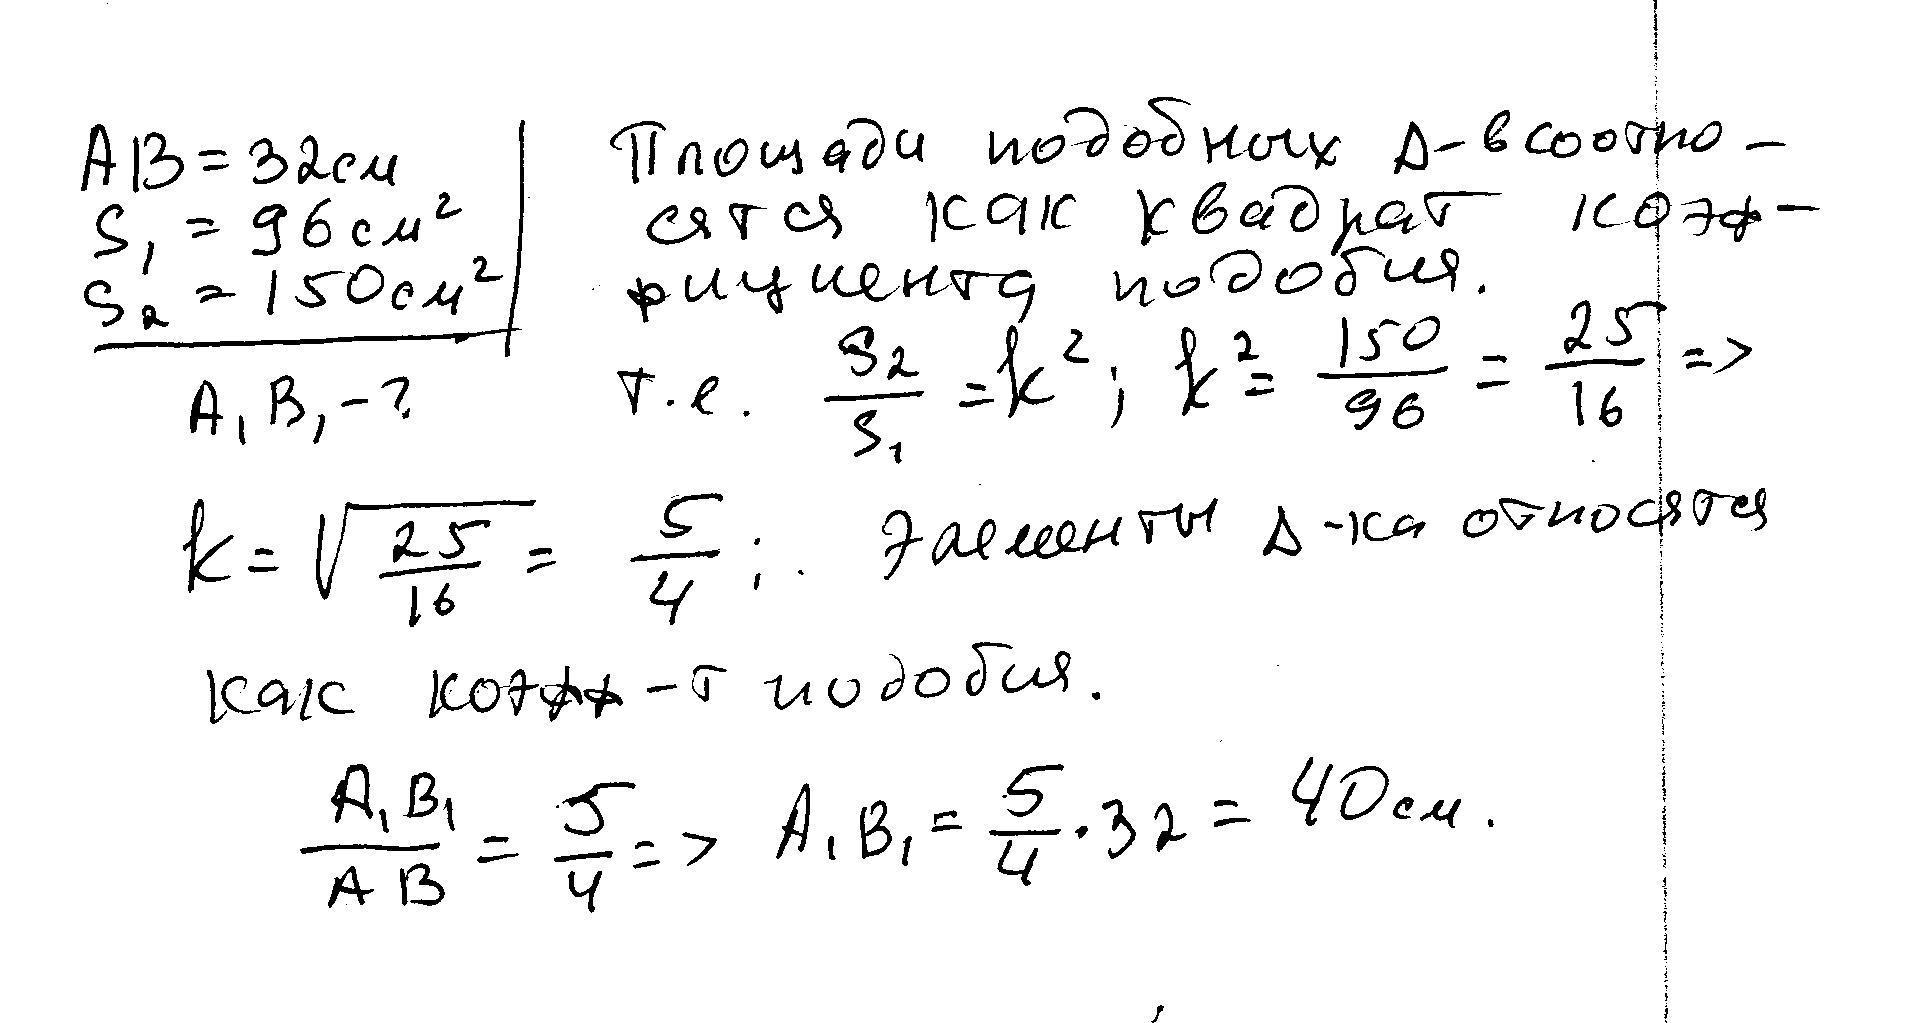 AB = 32см
S₁ = 96 см²
S₂ = 150 см²
A₁B₁ - ?
Площади подобных Δ-в соотно-
сятся как квадрат коэф-
фициента подобия.
т.е. S₂/S₁ = k²; k² = 150/96 = 25/16 =>
k = √(25/16) = 5/4; Элементы Δ-ка относятся
как коэфф-т подобия.
A₁B₁/AB = 5/4 => A₁B₁ = 5/4 · 32 = 40 см.